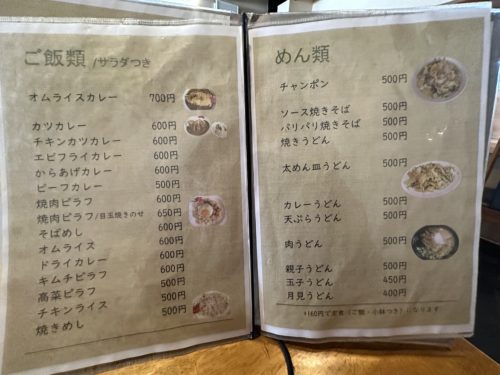 ご飯類 /サラダつき
オムライスカレー 700円
カツカレー 600円
チキンカツカレー 600円
エビフライカレー 600円
からあげカレー 600円
ビーフカレー 500円
焼肉ピラフ 600円
焼肉ピラフ/目玉焼きのせ 650円
そばめし 600円
オムライス 600円
ドライカレー 600円
キムチピラフ 500円
高菜ピラフ 500円
チキンライス 500円
焼きめし 500円
めん類
チャンポン 500円
ソース焼きそば 500円
パリパリ焼きそば 500円
焼きうどん 500円
太めん皿うどん 500円
カレーうどん 500円
天ぷらうどん 500円
肉うどん 500円
親子うどん 500円
玉子うどん 450円
月見うどん 400円
*160円で定食(ご飯・小鉢つき)になります